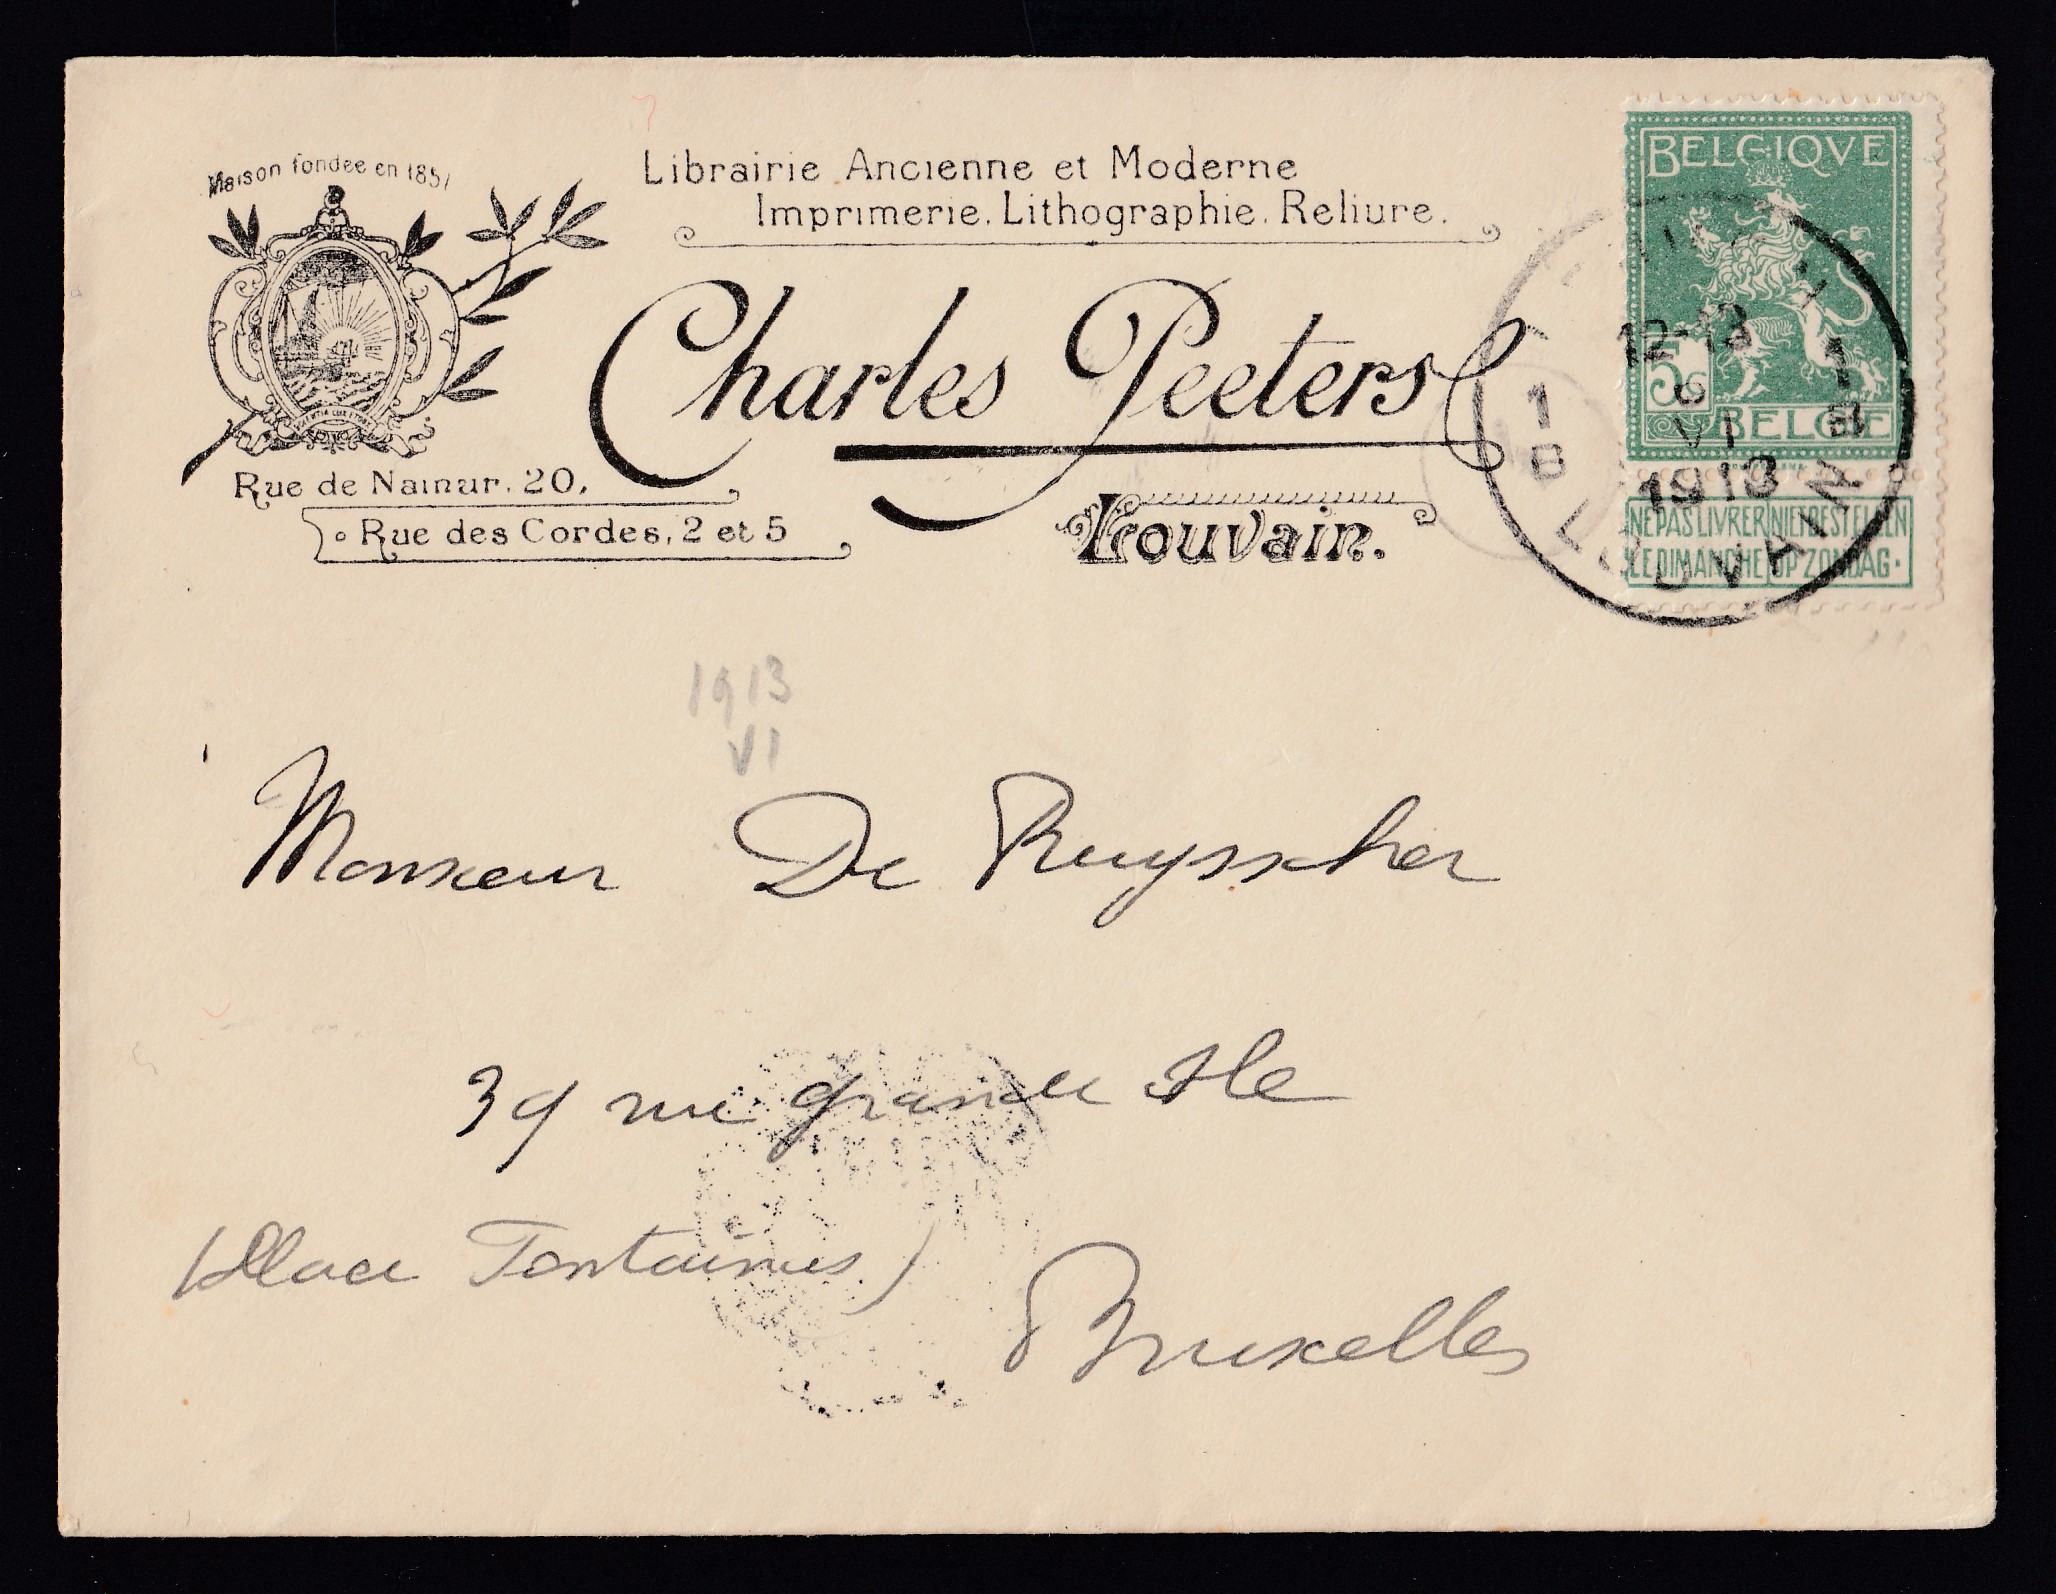 Maison fondée en 1851
Librairie Ancienne et Moderne
Imprimerie. Lithographie. Reliure.
Charles Peeters
Rue de Namur. 20,
Rue des Cordes, 2 et 5
Louvain.
BELGIQVE
5c
BELGIË
NE PAS LIVRER LE DIMANCHE
NIET BESTELLEN OP ZONDAG.
12-13
6
VI
1913
1
B
1
B
LOUVAIN
1913
VI
Monsieur De Ruysscher
39 rue grande Ile
(Place Fontainas)
Bruxelles